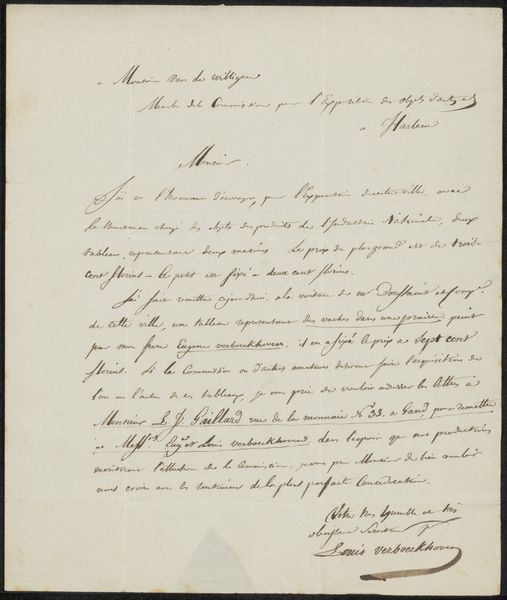 a Monsieur Van der Willigen
Membre de la Commission pour l'Exposition des objets d'art
a Harlem
Monsieur.
J'ai eu l'honneur d'envoyer, pour l'Exposition de cette ville, avec
le chargé des objets des produits de l'Industrie Nationale, deux
tableau, representant deux marines. Le prix du plus grand est de trois
cent florins - le petit en fixé a deux cent florins.
J'ai fait remettre aujourdhui, a la voiture de mr Doussaint et Compe.
de cette ville, un tableau representant des vaches dans une prairie, peint
par mon frere Eugene verboeckhoven, il en a fixé le prix a Sept cent
florins. Si la Commission ou d'autres amateurs desirent faire l'acquisition de
l'un ou l'autre de ces tableaux, je vous prie de vouloir adresser les lettres à
Monsieur L. J. Gaillard rue de la monnaie No. 33. a Gand, pour remettre
a Messrs. Eug. et Louis verboeckhoven, dans l'espoir que nos productions
meriteront l'attention de la Commission, je vous prie Monsieur de bien vouloir
nous croire avec les sentimens de la plus parfaite Consideration.
Votre tres humble et tres
obeissant Serviteur
Louis verboeckhoven